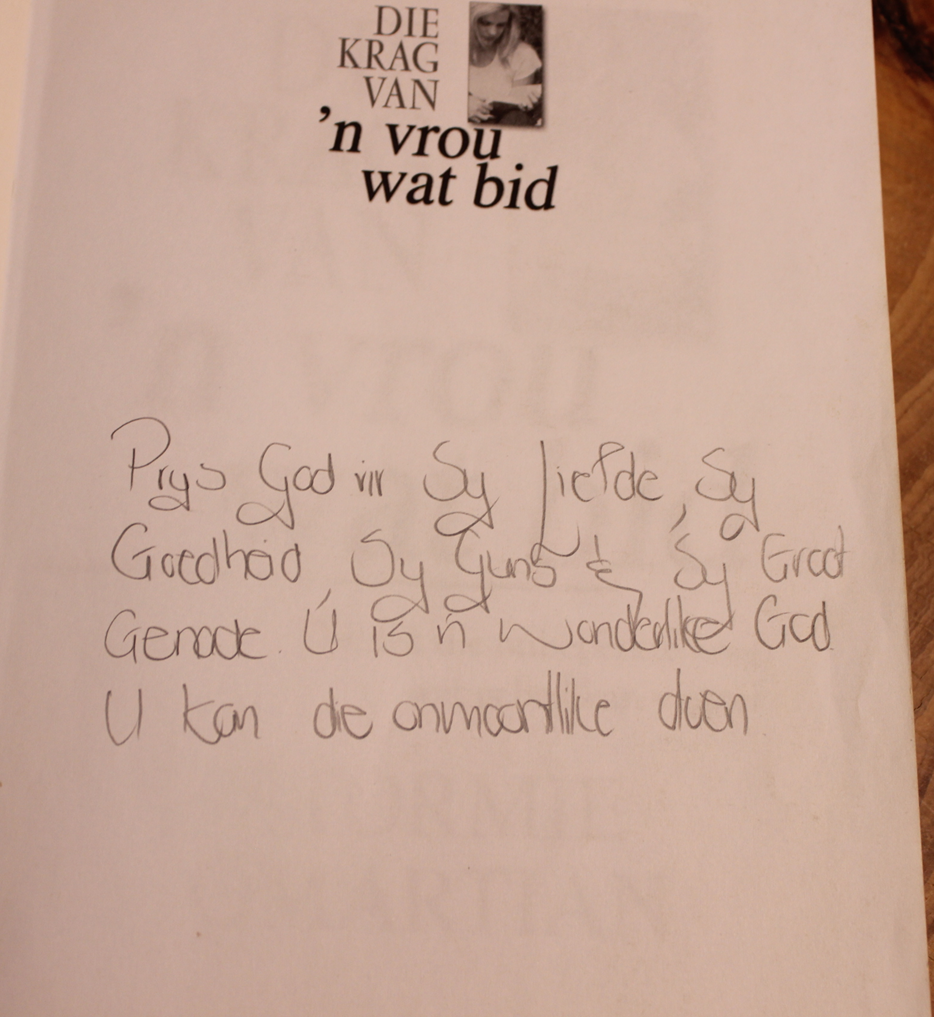 DIE
KRAG
VAN
'n vrou
wat bid
Prys God vir Sy liefde, Sy
Goedheid, Sy Guns & Sy Groot
Genade. U is 'n wonderlike God.
U kan die onmoontlike doen